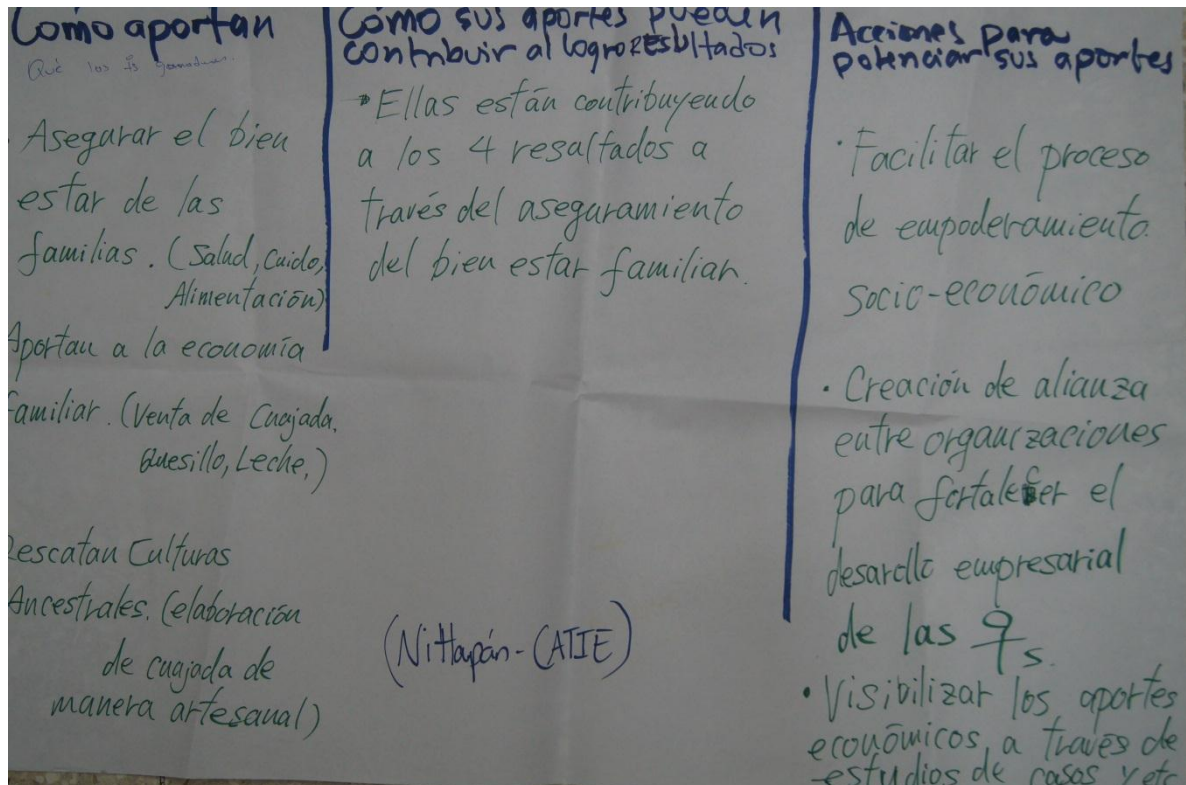 Como aportan
Qué los
Asegurar el bien
estar de las
familias. (Salud, Cuido,
Alimentación)
Aportan a la economía
familiar. (Venta de Cuajada,
Quesillo, Leche,)
Rescatan Culturas
Ancestrales. (elaboración
de cuajada de
manera artesanal)
Cómo sus aportes pueden
contribuir al logro resultados
• Ellas están contribuyendo
a los 4 resaltados a
través del aseguramiento
del bien estar familiar.
(Nitlapán-CATIE)
Acciones para
potenciar sus aportes
• Facilitar el proceso
de empoderamiento
socio-económico
• Creación de alianza
entre organizaciones
para fortalecer el
desarollo empresarial
de las ♀s.
• Visibilizar los aportes
económicos, a través de
estudios de casos y etc